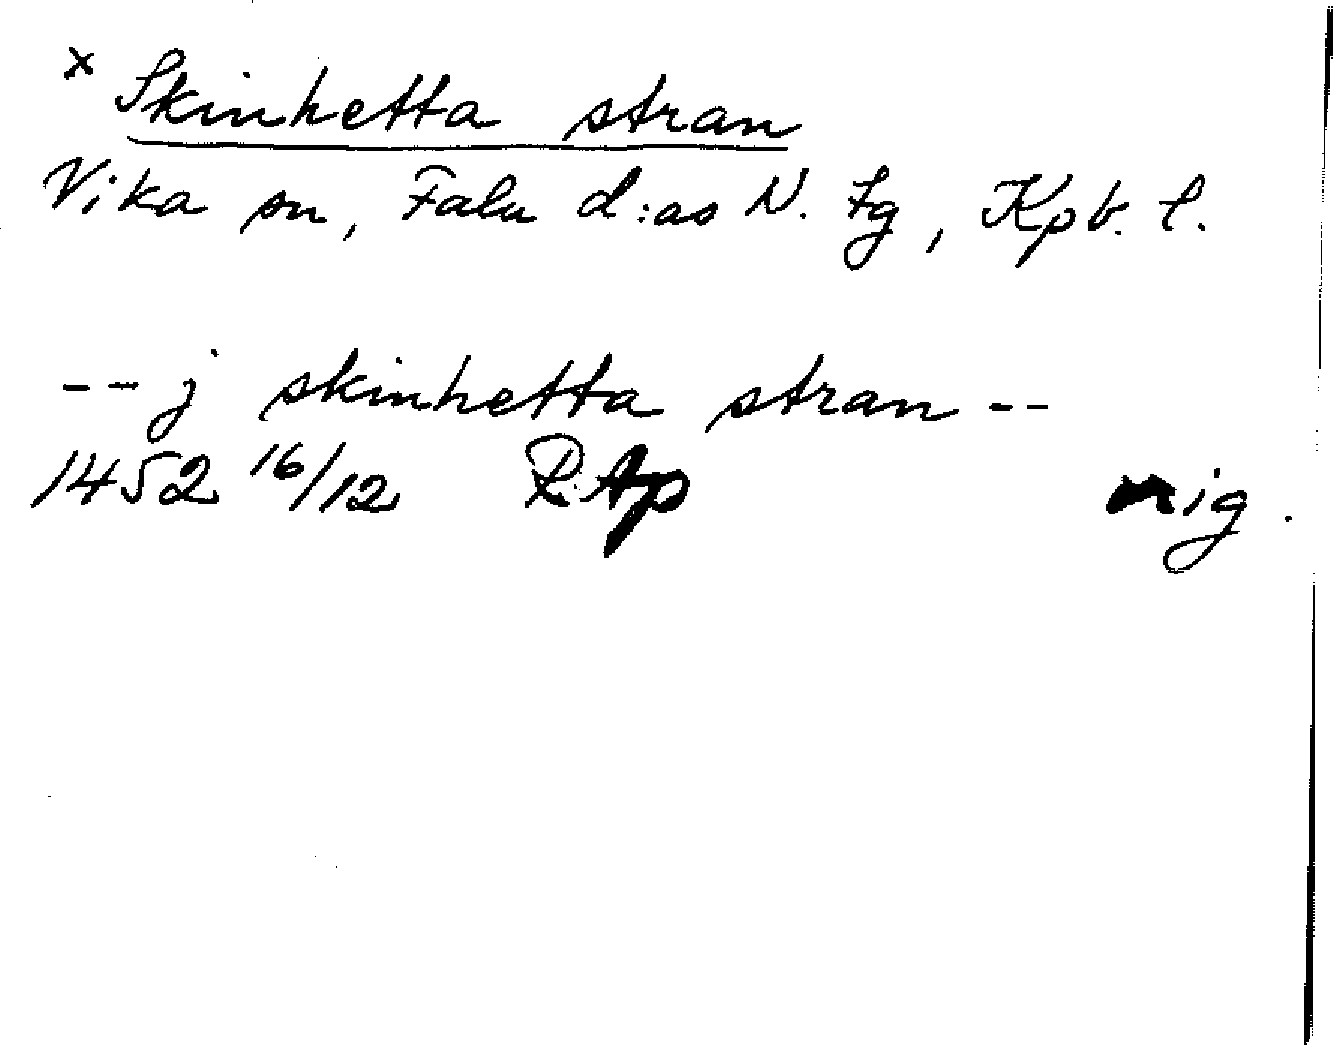 x Skinhetta stran
Vika sn, Falu d:as N. Fg, Kpb. l.
-- j skinhetta stran --
1452 16/12 R. Ap nig.